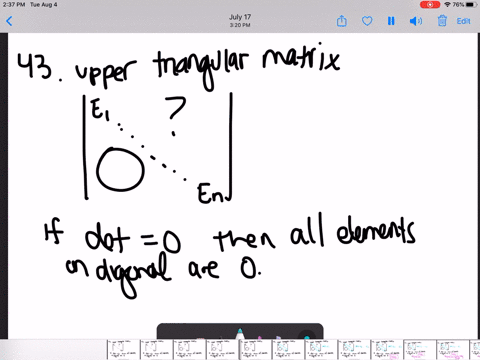 2:37 PM Tue Aug 4
76%
July 17
3:20 PM
Edit
43. upper triangular matrix
E1 ?
O
En
If det = 0 then all elements
on diagonal are 0.